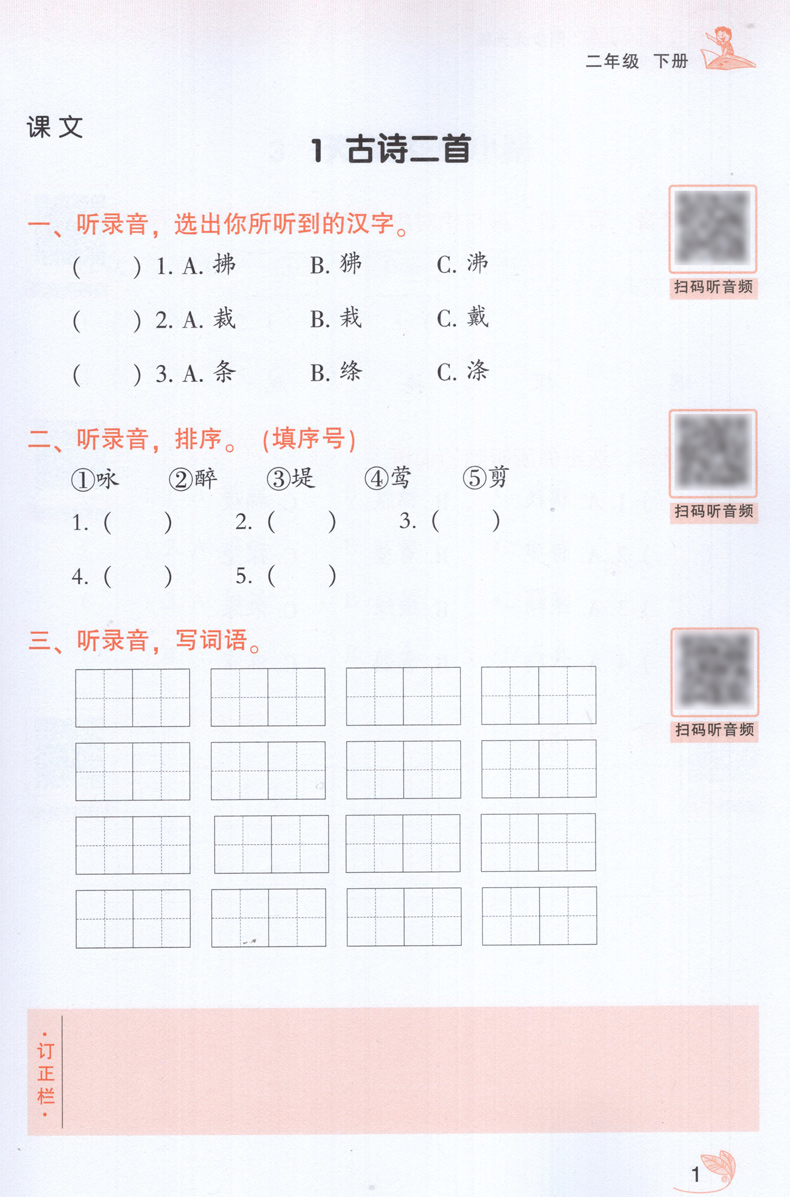 二年级 下册
课文
1 古诗二首
一、听录音，选出你所听到的汉字。
( ) 1. A. 拂 B. 狒 C. 沸
( ) 2. A. 裁 B. 栽 C. 戴
( ) 3. A. 条 B. 绦 C. 涤
扫码听音频
二、听录音，排序。(填序号)
①咏 ②醉 ③堤 ④莺 ⑤剪
1. ( ) 2. ( ) 3. ( )
4. ( ) 5. ( )
扫码听音频
三、听录音，写词语。
扫码听音频
·订正栏·
1